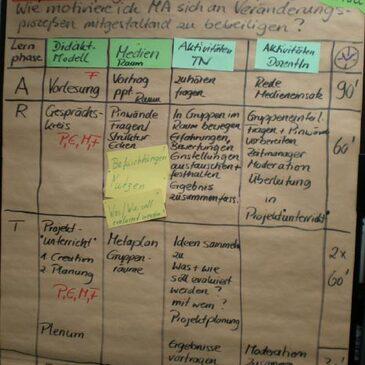 Wie motiviere ich MA sich an Veränderungs-
prozeßen mitgestaltend zu
beteiligen?
Lern
phase
Didakt.
Modell
Medien
Raum
Aktivitäten
TN
Aktivitäten
DozentIn
A
Vorlesung
F
Vortrag
ppt
Raum
zuhören
fragen
Rede
Medieneinsatz
90'
R
Gesprächs-
kreis
P, E, M, F
Pinwände
fragen/
Struktur
Ecken
Befürchtungen
In Gruppen im
Raum bewegen
Erfahrungen,
Bewertungen
Einstellungen
austauschen +
festhalten
Ergebnis
zusammenfass.
Gruppeneinteil.
fragen + Pinwände
vorbereiten
Zeitmanager
Moderation
Überleitung
in
Projektunterricht
60'
T
Projekt-
unterricht
1 Creation
2 Planung
P, E, M, F
Plenum
Metaplan
Gruppen-
räume
Ideen sammeln
zu
Was + wie
soll evaluiert
werden?
mit wem?
Projektplanung
Ergebnisse
vortragen
Moderation
2x
60'